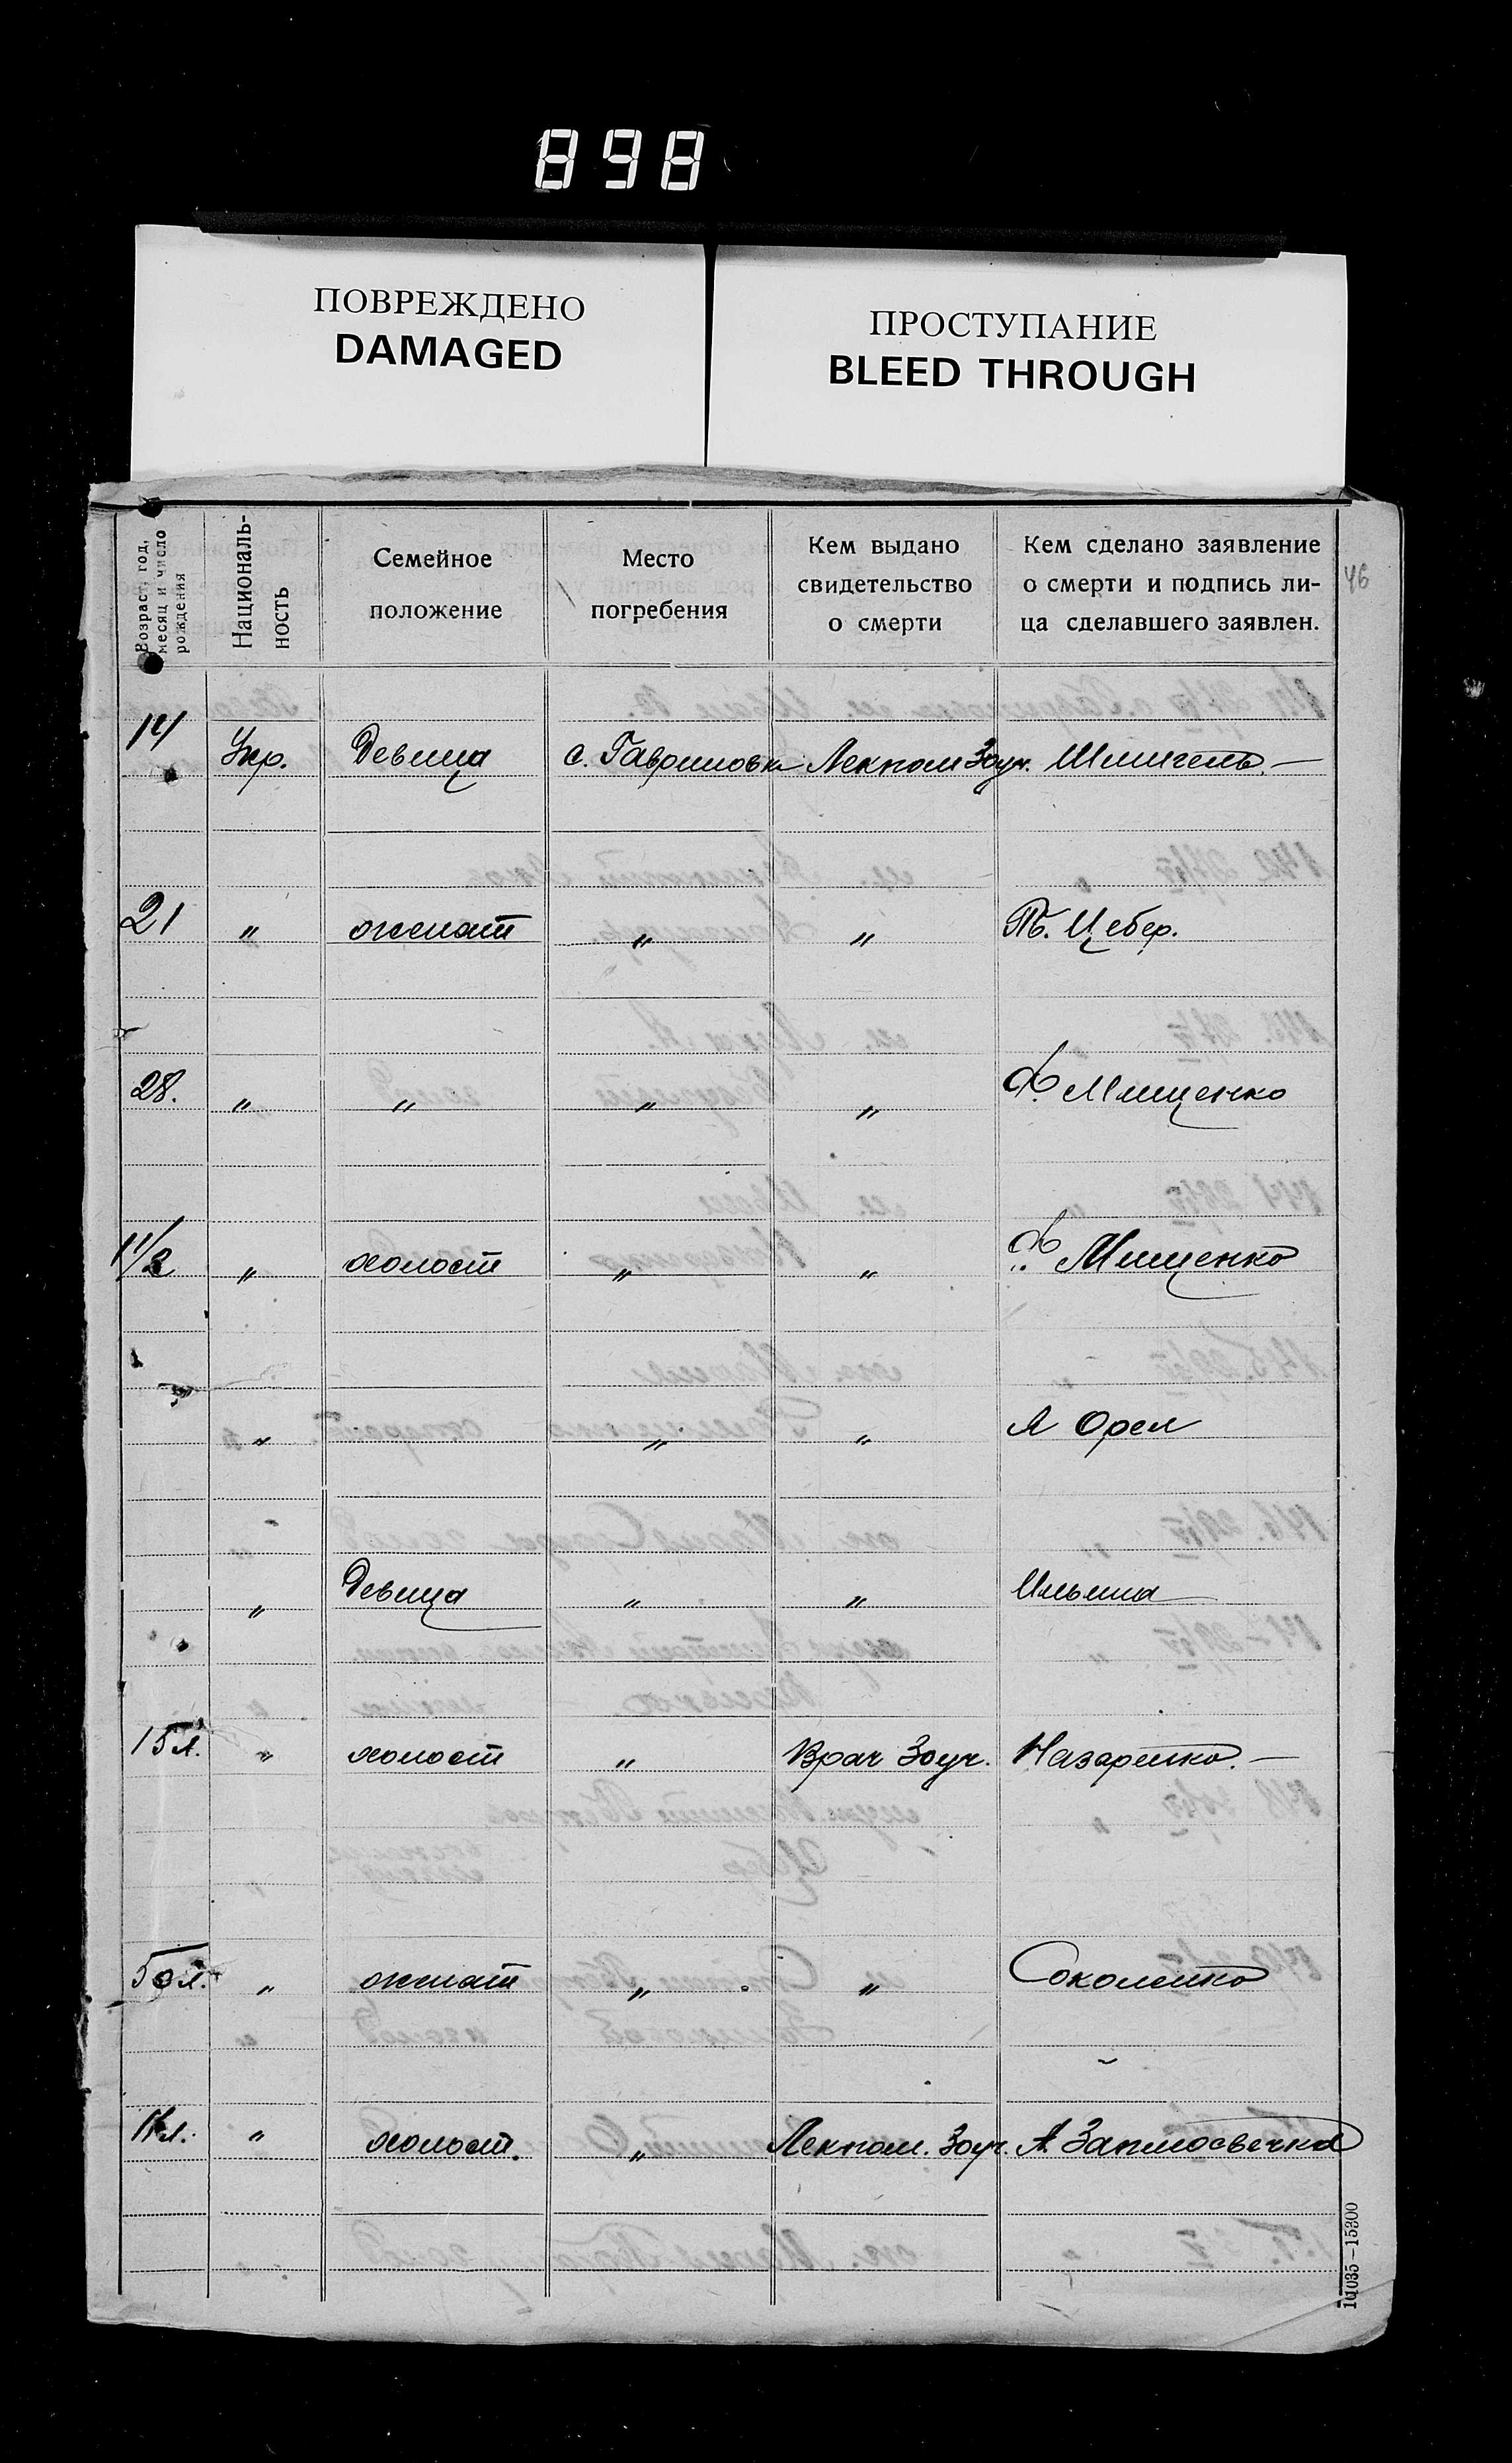 898
ПОВРЕЖДЕНО
DAMAGED
ПРОСТУПАНИЕ
BLEED THROUGH
46
Возраст, год, месяц и число рождения
Националь-
ность
Семейное
положение
Место
погребения
Кем выдано
свидетельство
о смерти
Кем сделано заявление
о смерти и подпись ли-
ца сделавшего заявлен.
14 Укр. Девица с. Гавриловка Лекпом Зоуч. Шмигель.—
21 " женат " " Цебер.
28. " " " " Ф. Мищенко
1 1/2 " холост " " Ф. Мищенко
" " " Я Орел
" Девица " " Ильина
15 л. " холост " Врач Зоуч. Назаренко.—
50 л. " женат " " Соколенко
" холост. " Лекпом. Зоуч. А.
10035—15300